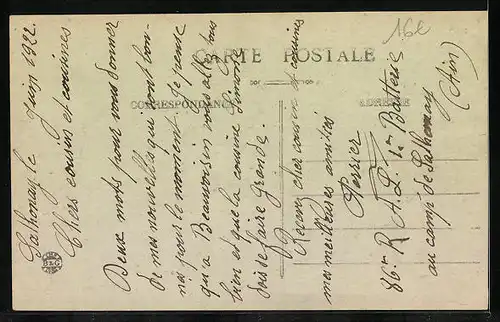 16€
CARTE POSTALE
CORRESPONDANCE
ADRESSE
Sathonay le Juin 1922
Chers cousin et cousines
Deux mots pour vous donner
de mes nouvelles qui sont bon-
nes pour le moment. Je pense
qu'a Beauvoisin vous allez tous
bien et que la cousine Simone
doit se faire grande.
Recevez cher cousin et cousines
mes meilleures amitiés
Perrier
86me R A. L. 1re Batterie
au camp de Sathonay
(Ain)